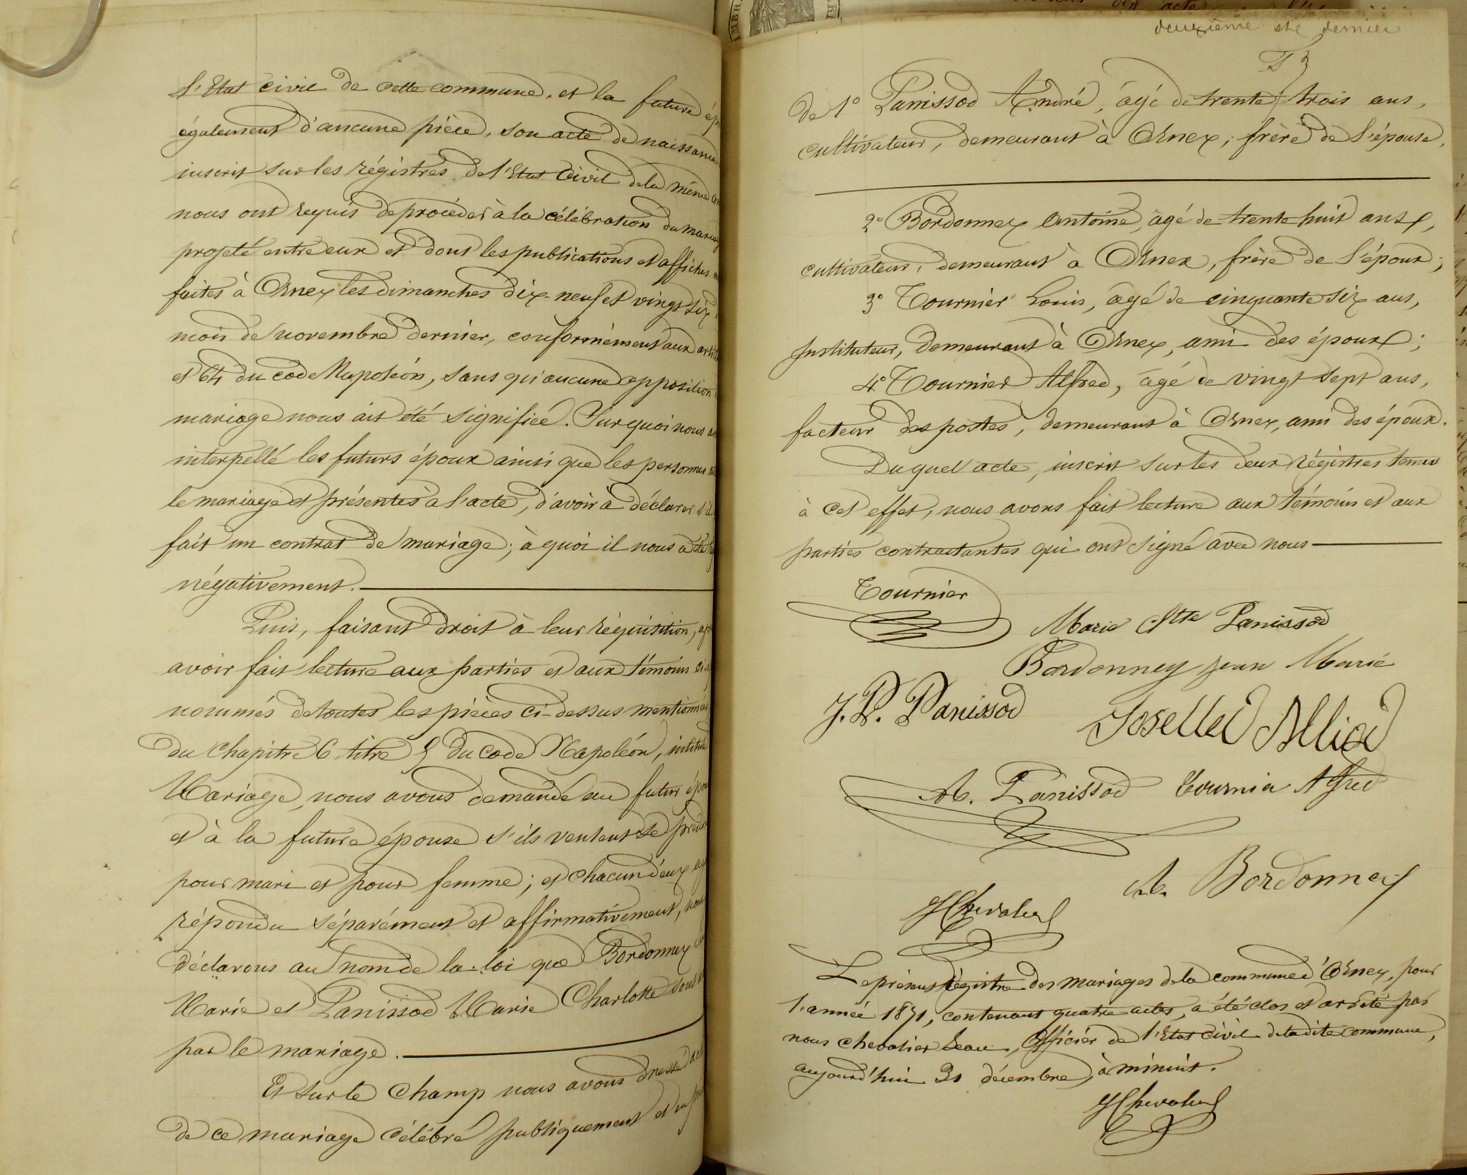 l'Etat civil de cette commune, et la future
également d'aucune pièce, son acte de naissance
inscrit sur les régistres de l'Etat Civil de la même
nous ont requis de procéder à la célébration du mariage
projeté entre eux et dont les publications et affiches
faites à Ornex les dimanches dix-neuf et vingt-six
mois de novembre dernier, conformément aux
et 64 du code Napoléon, sans qu'aucune opposition
mariage nous ait été signifiée. Sur quoi nous
interpellé les futurs époux ainsi que les personnes
le mariage et présentes à l'acte, d'avoir à déclarer
fait un contrat de mariage; à quoi il nous a
négativement.
Puis, faisant droit à leur réquisition,
avoir fait lecture aux parties et aux témoins
nommés de toutes les pièces ci-dessus mentionnées
du chapitre 6 titre 5 du code Napoléon, intitulé
Mariage, nous avons demandé au futur époux
et à la future épouse s'ils veulent se prendre
pour mari et pour femme; et chacun d'eux
répondu séparément et affirmativement, nous
déclarons au nom de la loi que Bordonnex
Marie et Panissod Marie Charlotte sont
par le mariage.
Et sur le champ nous avons dressé
de ce mariage célébré publiquement et
deuxième et dernier
de 1º Panissod André, âgé de trente trois ans,
cultivateur, demeurant à Ornex, frère de l'épouse,
2º Bordonnex Antoine, âgé de trente huit ans,
cultivateur, demeurant à Ornex, frère de l'époux;
3º Tournier Louis, âgé de cinquante six ans,
Instituteur, demeurant à Ornex, ami des époux;
4º Tournier Alfred, âgé de vingt sept ans,
facteur des postes, demeurant à Ornex, ami des époux.
Duquel acte, inscrit sur les deux régistres tenus
à cet effet, nous avons fait lecture aux témoins et aux
parties contractantes qui ont signé avec nous
Tournier
Marie Panissod
Bordonney jean Marie
J. P. Panissod
A. Panissod Tournier Alfred
A. Bordonnex
Chevalier
Le présent régistre des mariages de la commune d'Ornex, pour
l'année 1871, contenant quatre actes, a été clos et arrêté par
nous Chevalier Jean, Officier de l'Etat Civil de la dite commune,
aujourd'hui 31 décembre, à minuit.
Chevalier